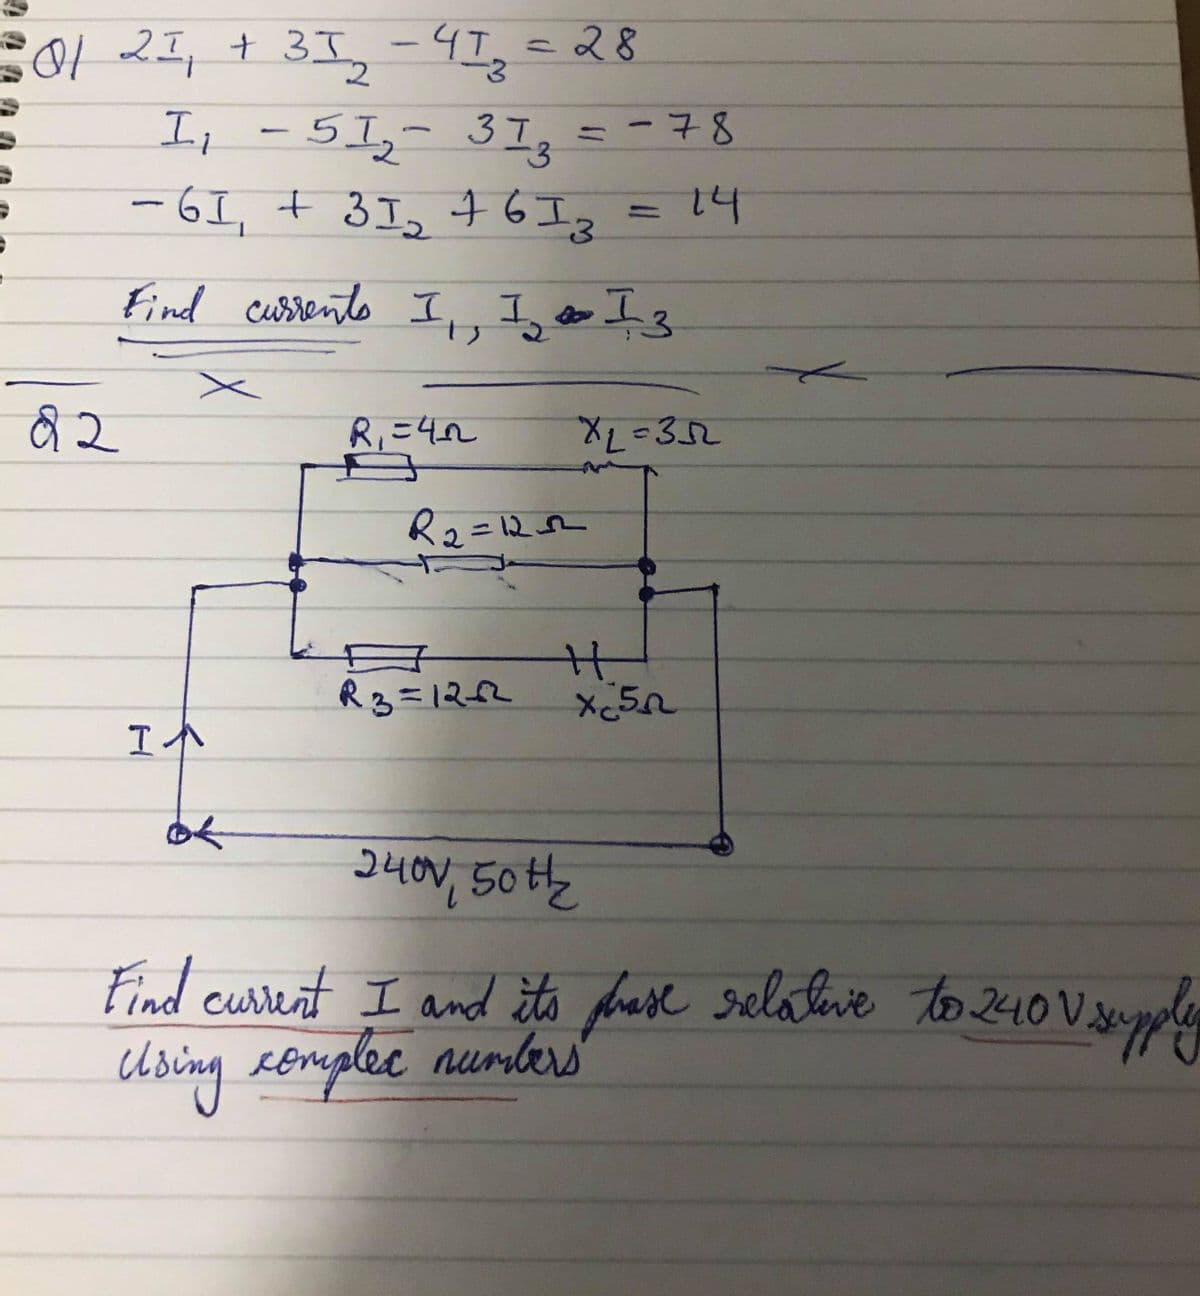 Q1 2I₁ + 3I₂ - 4I₃ = 28
I₁ - 5I₂ - 3I₃ = -78
-6I₁ + 3I₂ + 6I₃ = 14
Find currents I₁, I₂ I₃
Q2
R₁=4Ω X_L=3Ω
R₂=12Ω
R₃=12Ω Xc=5Ω
I
240V, 50Hz
Find current I and its phase relative to 240V supply
Using complex numbers